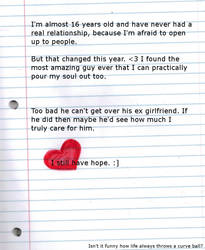 I'm almost 16 years old and have never had a
real relationship, because I'm afraid to open
up to people.
But that changed this year. <3 I found the
most amazing guy ever that I can practically
pour my soul out too.
Too bad he can't get over his ex girlfriend. If
he did then maybe he'd see how much I
truly care for him.
I still have hope. :]
Isn't it funny how life always throws a curve ball?